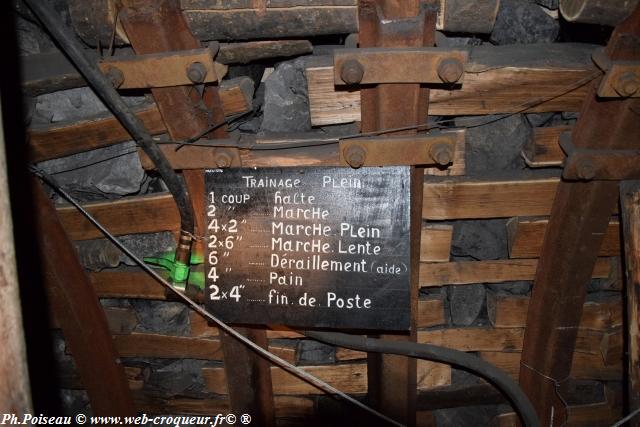 TRAINAGE PLEIN
1 COUP ......... halte
2 " ......... MARCHE
4x2" ...... MARCHE. PLEIN
2x6" ...... MARCHE. LENTE
6 " ......... DÉRAILLEMENT (aide)
4 " ......... PAIN
2x4" ......... fin. de POSTE
Ph POISEAU © www.web-croqueur.fr ®